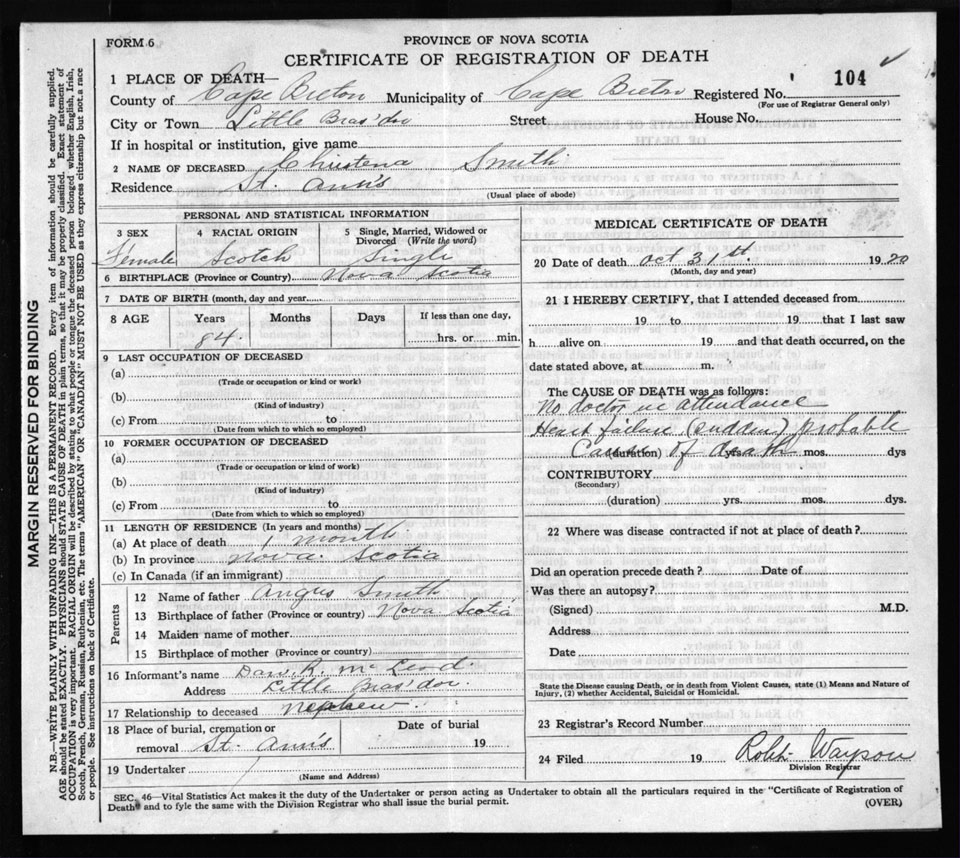 FORM 6
PROVINCE OF NOVA SCOTIA
CERTIFICATE OF REGISTRATION OF DEATH
1 PLACE OF DEATH—
County of Cape Breton Municipality of Cape Breton Registered No. 104
(For use of Registrar General only)
City or Town Little Bras'dor Street House No.
If in hospital or institution, give name
2 NAME OF DECEASED Christena Smith
Residence St. Ann's
(Usual place of abode)
PERSONAL AND STATISTICAL INFORMATION
3 SEX 4 RACIAL ORIGIN 5 Single, Married, Widowed or Divorced (Write the word)
Female Scotch Single
6 BIRTHPLACE (Province or Country) Nova Scotia
7 DATE OF BIRTH (month, day and year)
8 AGE Years Months Days If less than one day,
84 hrs. or min.
9 LAST OCCUPATION OF DECEASED
(a)
(Trade or occupation or kind or work)
(b)
(Kind of industry)
(c) From to
(Date from which to which so employed)
10 FORMER OCCUPATION OF DECEASED
(a)
(Trade or occupation or kind of work)
(b)
(Kind of industry)
(c) From to
(Date from which to which so employed)
11 LENGTH OF RESIDENCE (In years and months)
(a) At place of death 1 month
(b) In province Nova Scotia
(c) In Canada (if an immigrant)
Parents
12 Name of father Angus Smith
13 Birthplace of father (Province or country) Nova Scotia
14 Maiden name of mother
15 Birthplace of mother (Province or country)
16 Informant's name Dan. R. McLeod.
Address Little Bras'dor.
17 Relationship to deceased Nephew.
18 Place of burial, cremation or removal St. Ann's
Date of burial
19
19 Undertaker
(Name and Address)
MEDICAL CERTIFICATE OF DEATH
20 Date of death Oct 31st. 1920
(Month, day and year)
21 I HEREBY CERTIFY, that I attended deceased from
19 to 19 that I last saw
h alive on 19 and that death occurred, on the
date stated above, at m.
The CAUSE OF DEATH was as follows:
No doctor in attendance
Heart failure (sudden) probable
Cause of death
(duration) yrs. mos. dys
CONTRIBUTORY
(Secondary)
(duration) yrs. mos. dys.
22 Where was disease contracted if not at place of death?
Did an operation precede death? Date of
Was there an autopsy?
(Signed) M.D.
Address
Date
State the Disease causing Death, or in death from Violent Causes, state (1) Means and Nature of
Injury, (2) whether Accidental, Suicidal or Homicidal.
23 Registrar's Record Number
24 Filed 19 Robt Wayson
Division Registrar
SEC. 46—Vital Statistics Act makes it the duty of the Undertaker or person acting as Undertaker to obtain all the particulars required in the "Certificate of Registration of
Death" and to fyle the same with the Division Registrar who shall issue the burial permit.
(OVER)
MARGIN RESERVED FOR BINDING
N.B.—WRITE PLAINLY WITH UNFADING INK—THIS IS A PERMANENT RECORD. Every item of information should be carefully supplied.
AGE should be stated EXACTLY. PHYSICIANS should STATE CAUSE OF DEATH in plain terms, so that it may be properly classified. Exact statement of
OCCUPATION is very important. RACIAL ORIGIN will be described by stating to what people or tongue the deceased person belonged whether English, Irish,
Scotch, French, German, Russian, Ruthenian, etc. The terms "AMERICAN" OR "CANADIAN" MUST NOT BE USED as they express citizenship but not a race
or people. See instructions on back of Certificate.